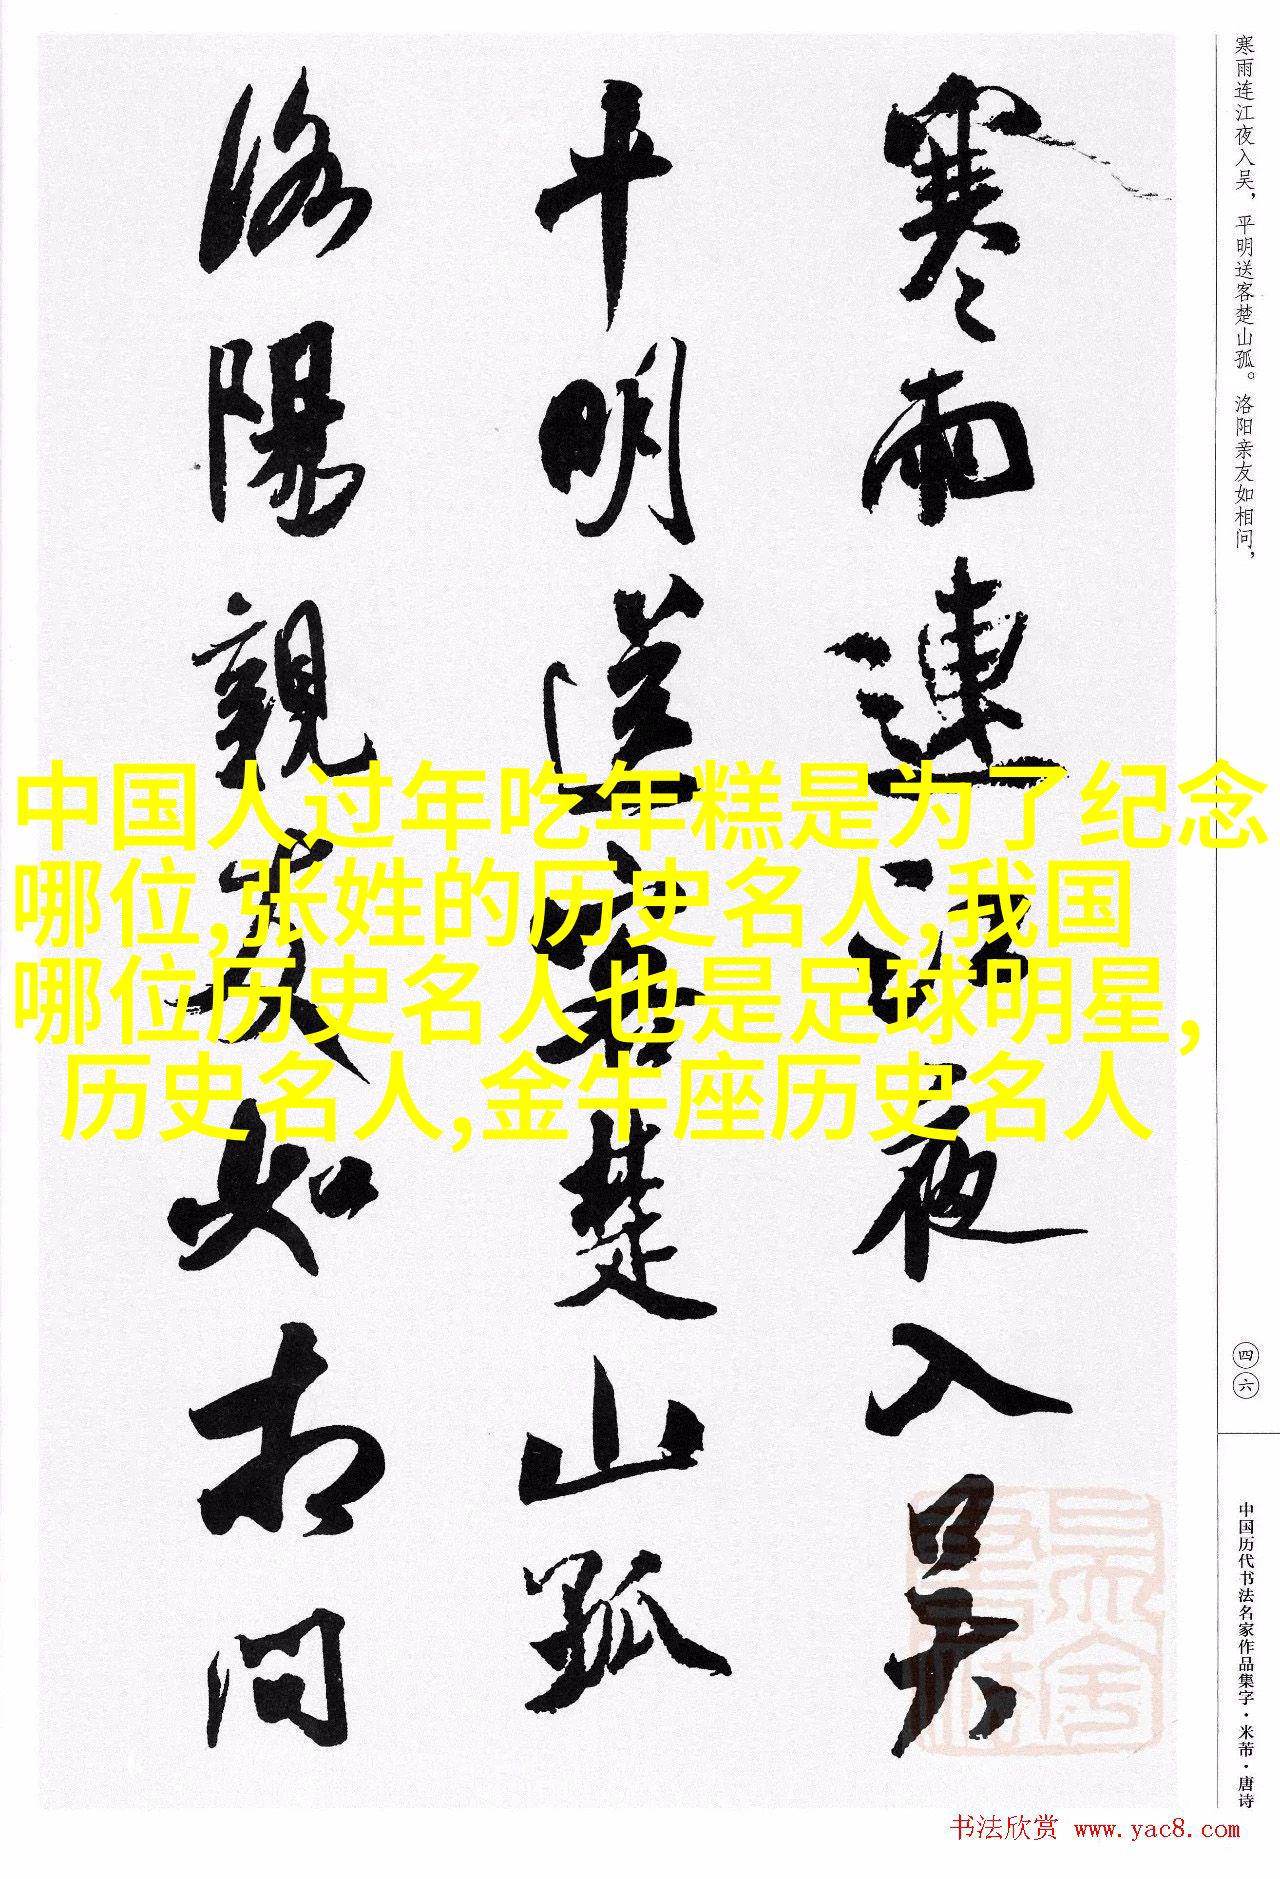 寒雨連江夜入吴
平明送客楚山孤
洛陽親友如相问
寒雨连江夜入吴，平明送客楚山孤。洛阳亲友如相问，
四六
中国历代书法名家作品集字·米芾·唐诗
中国人过年吃年糕是为了纪念
哪位,张姓的历史名人,我国
哪位历史名人也是足球明星,
历史名人,金牛座历史名人
书法欣赏 www.yac8.com